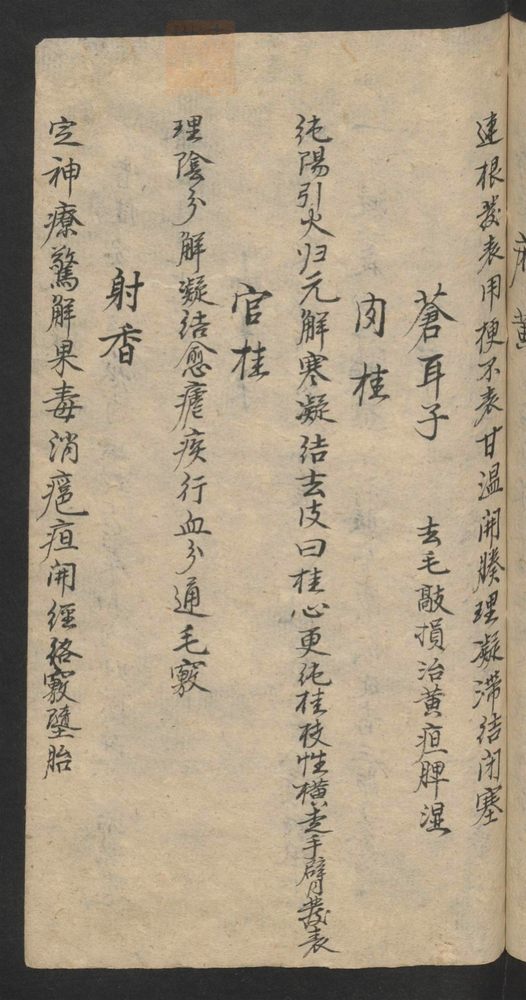 麻黃
連根發表用梗不表甘溫開腠理凝滯結閉塞
蒼耳子　去毛敲損治黃疸脾湿
肉桂
純陽引火归元解寒凝结去皮曰桂心更純桂枝性橫走手臂發表
官桂
理陰分解凝结愈瘧疾行血分通毛竅
射香
定神療驚解果毒消疤疸開經络竅墮胎